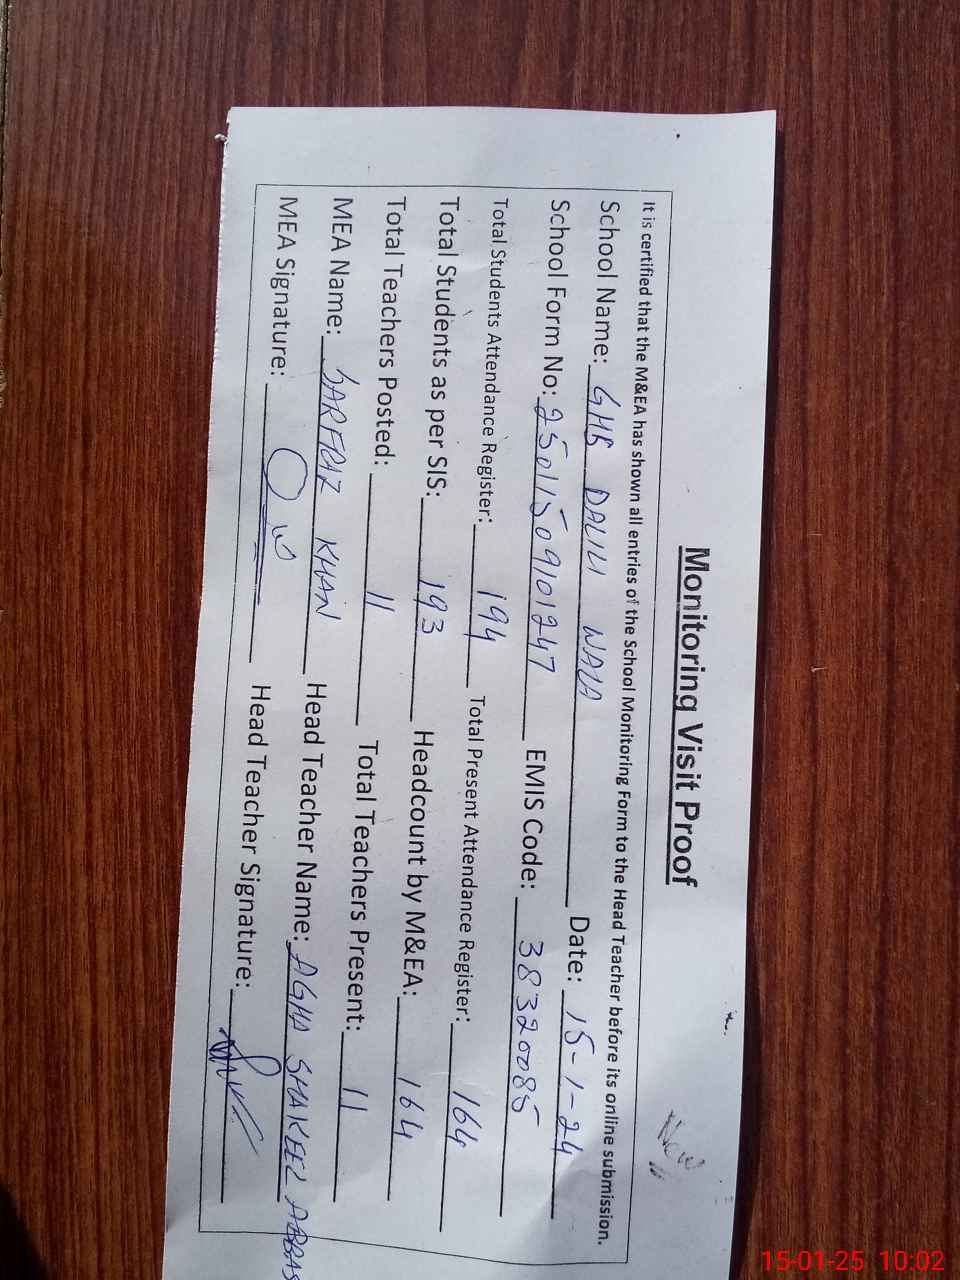 New
Monitoring Visit Proof
It is certified that the M&EA has shown all entries of the School Monitoring Form to the Head Teacher before its online submission.
School Name: GHB DAULI WALA Date: 15-1-24
School Form No: 25011509101247 EMIS Code: 38320085
Total Students Attendance Register: 194 Total Present Attendance Register: 164
Total Students as per SIS: 193 Headcount by M&EA: 164
Total Teachers Posted: 11 Total Teachers Present: 11
MEA Name: SARFRAZ KHAN Head Teacher Name: AGHA SHAKEEL ABBAS
MEA Signature: Head Teacher Signature:
15-01-25 10:02